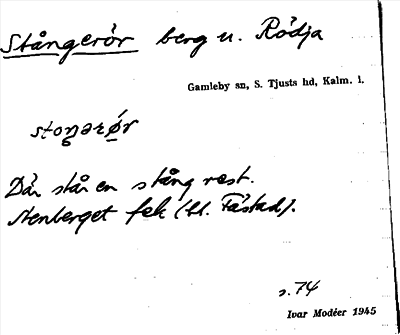 Stångerör berg u. Rödja
Gamleby sn, S. Tjusts hd, Kalm. l.
Där står en stång rest.
Stenberget fek (bl. Fåstad).
s. 74
Ivar Modéer 1945